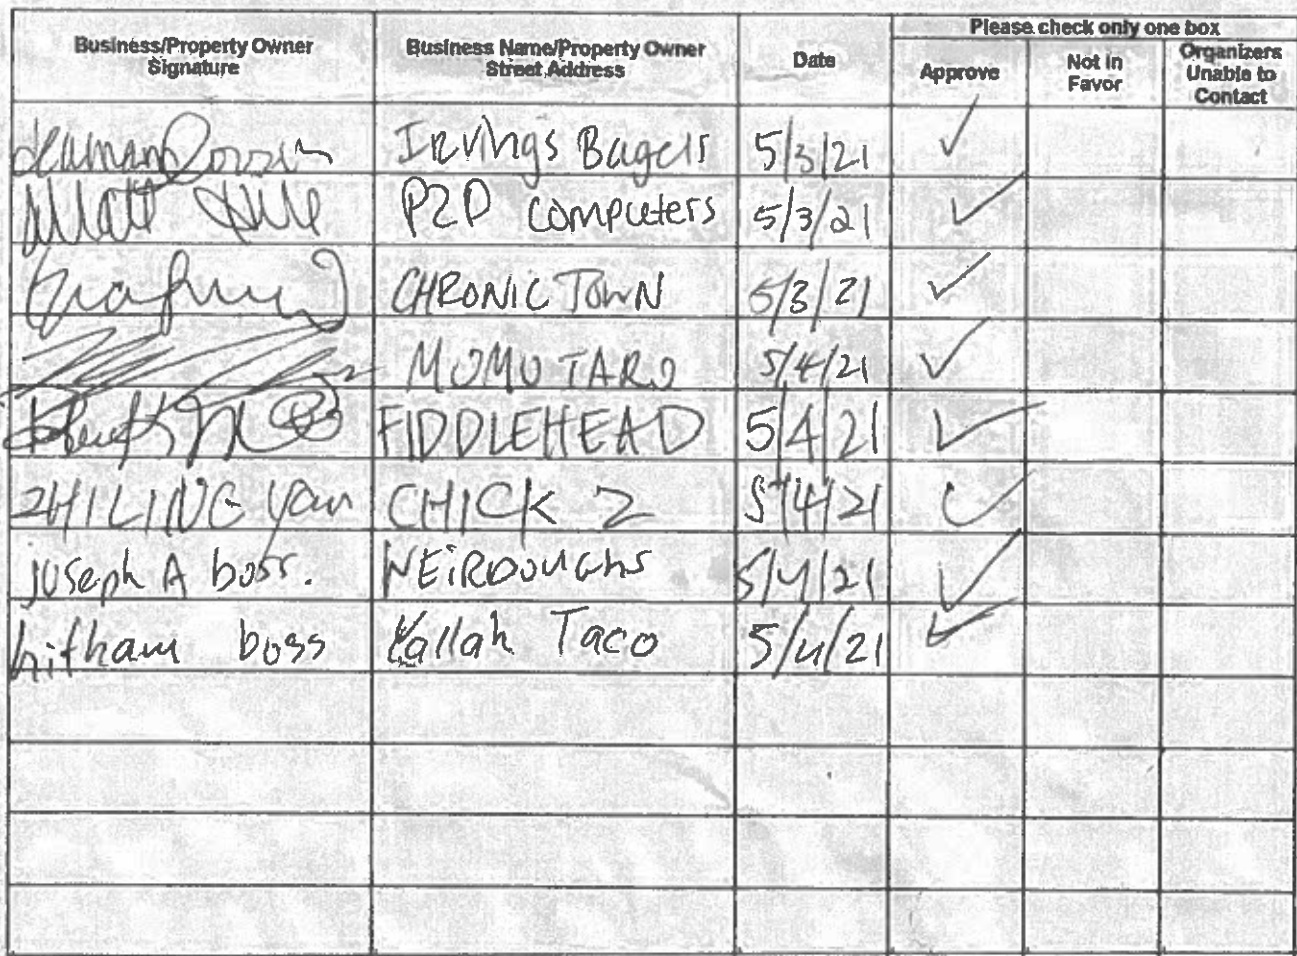 Please check only one box
Business/Property Owner Signature
Business Name/Property Owner Street Address
Date
Approve
Not in Favor
Organizers Unable to Contact
Irvings Bagels 5/3/21 ✓
Matt P2P computers 5/3/21 ✓
CHRONIC TOWN 5/3/21 ✓
MOMOTARO 5/4/21 ✓
FIDDLEHEAD 5/4/21 ✓
ZHILING Yan CHICK 2 5/4/21 ✓
Joseph A boss. WEiRDOUGHS 5/4/21 ✓
hitham boss Yallah Taco 5/4/21 ✓